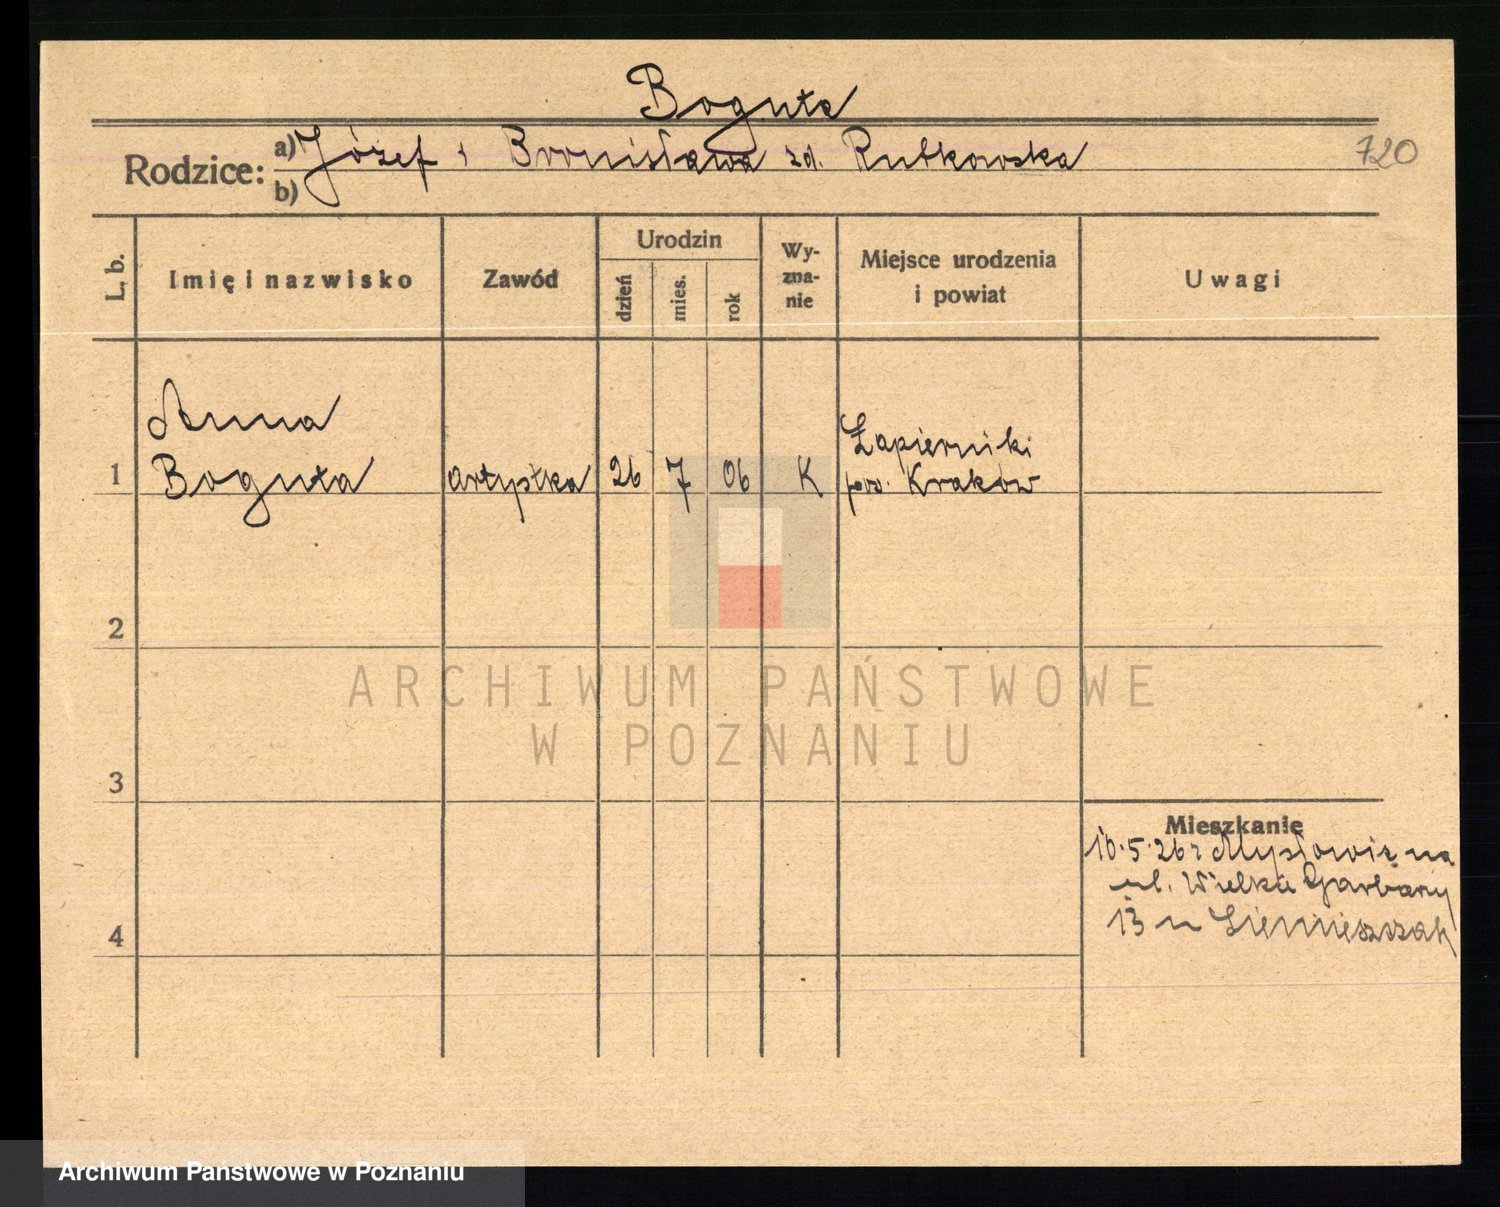 Boguta
Rodzice: a) Józef i Bronisława zd. Rutkowska
b)
720
L. b.
Imię i nazwisko
Zawód
Urodzin
dzień
mies.
rok
Wy-
zna-
nie
Miejsce urodzenia
i powiat
Uwagi
Anna
1 Boguta artystka 26 7 06 K
Łapierniki
pow. Kraków
2
ARCHIWUM PAŃSTWOWE
W POZNANIU
3
Mieszkanie
16.5.26 z Mysłowic na
ul. Wielkie Garbary
13 u
4
Archiwum Państwowe w Poznaniu